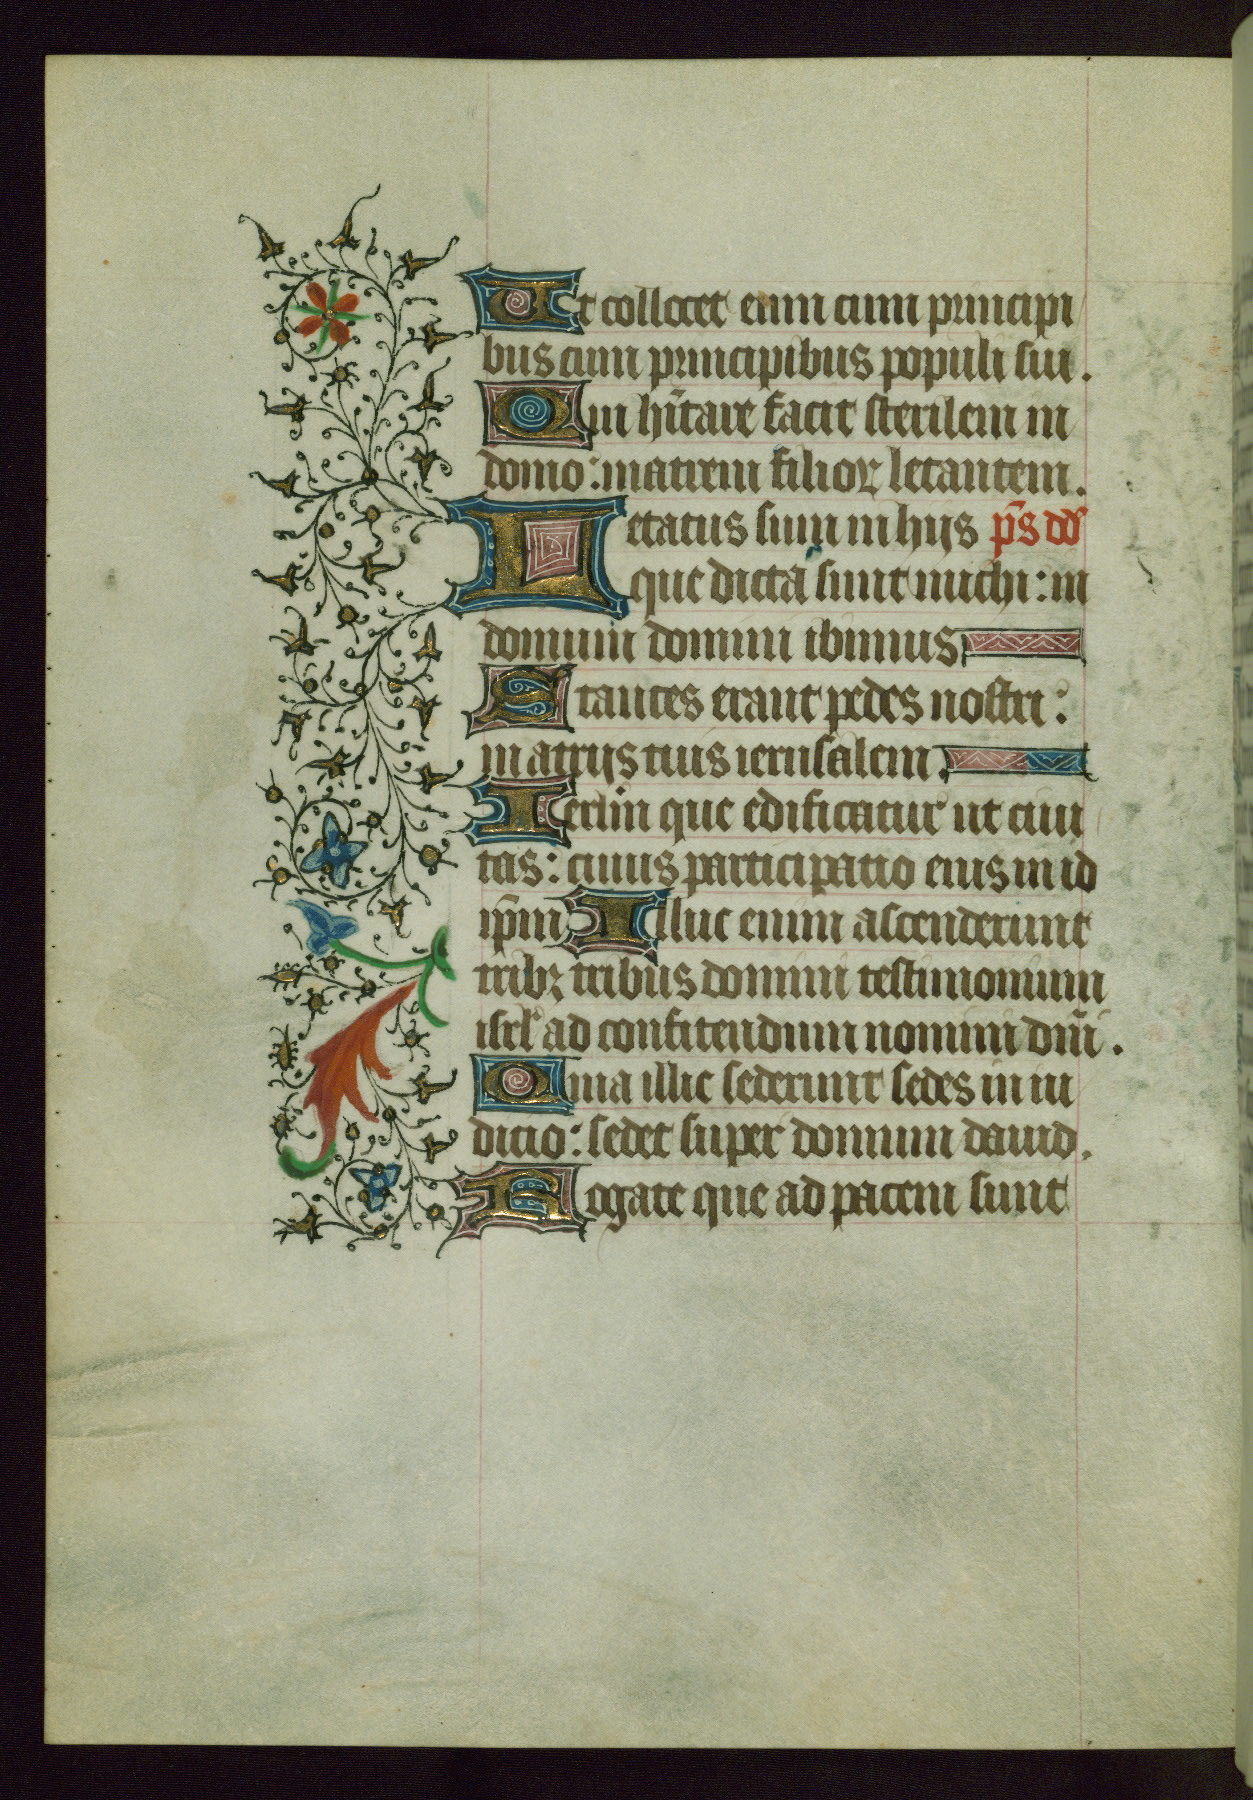 Ut collocet eum cum principi
bus cum principibus populi sui.
Qui hītare facit sterilem in
domo: matrem filioꝝ letantem.
Letatus sum in hijs p̄s dd̄
que dicta sunt michi: in
domum domini ibimus
Stantes erant pedes nostri:
in atrijs tuis ierusalem.
Ierl̄m que edificatur ut ciui
tas: cuius participatio eius in id
ip̄m Illuc enim ascenderunt
tribꝫ tribus domini testimonium
isrl̄ ad confitendum nomini dn̄i.
Quia illic sederunt sedes in iu
dicio: sedet super domum dauid.
Rogate que ad pacem sunt